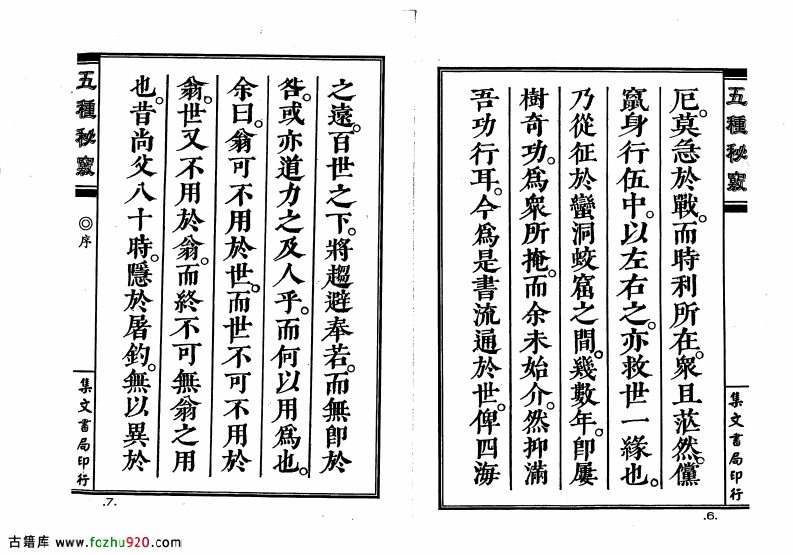 五種秘竅
厄。莫急於戰。而時利所在。衆且茫然。儻
竄身行伍中。以左右之。亦救世一緣也。
乃從征於蠻洞蛟窟之間。幾數年。卽屢
樹奇功。爲衆所掩。而余未始介。然抑滿
吾功行耳。今爲是書流通於世。俾四海
集文書局印行
.6.
之遠。百世之下。將趨避奉若。而無卽於
咎。或亦道力之及人乎。而何以用爲也。
余曰。翁可不用於世。而世不可不用於
翁。世又不用於翁。而終不可無翁之用
也。昔尚父八十時。隱於屠釣。無以異於
五種秘竅
◎序
集文書局印行
.7.
古籍库 www.fozhu920.com